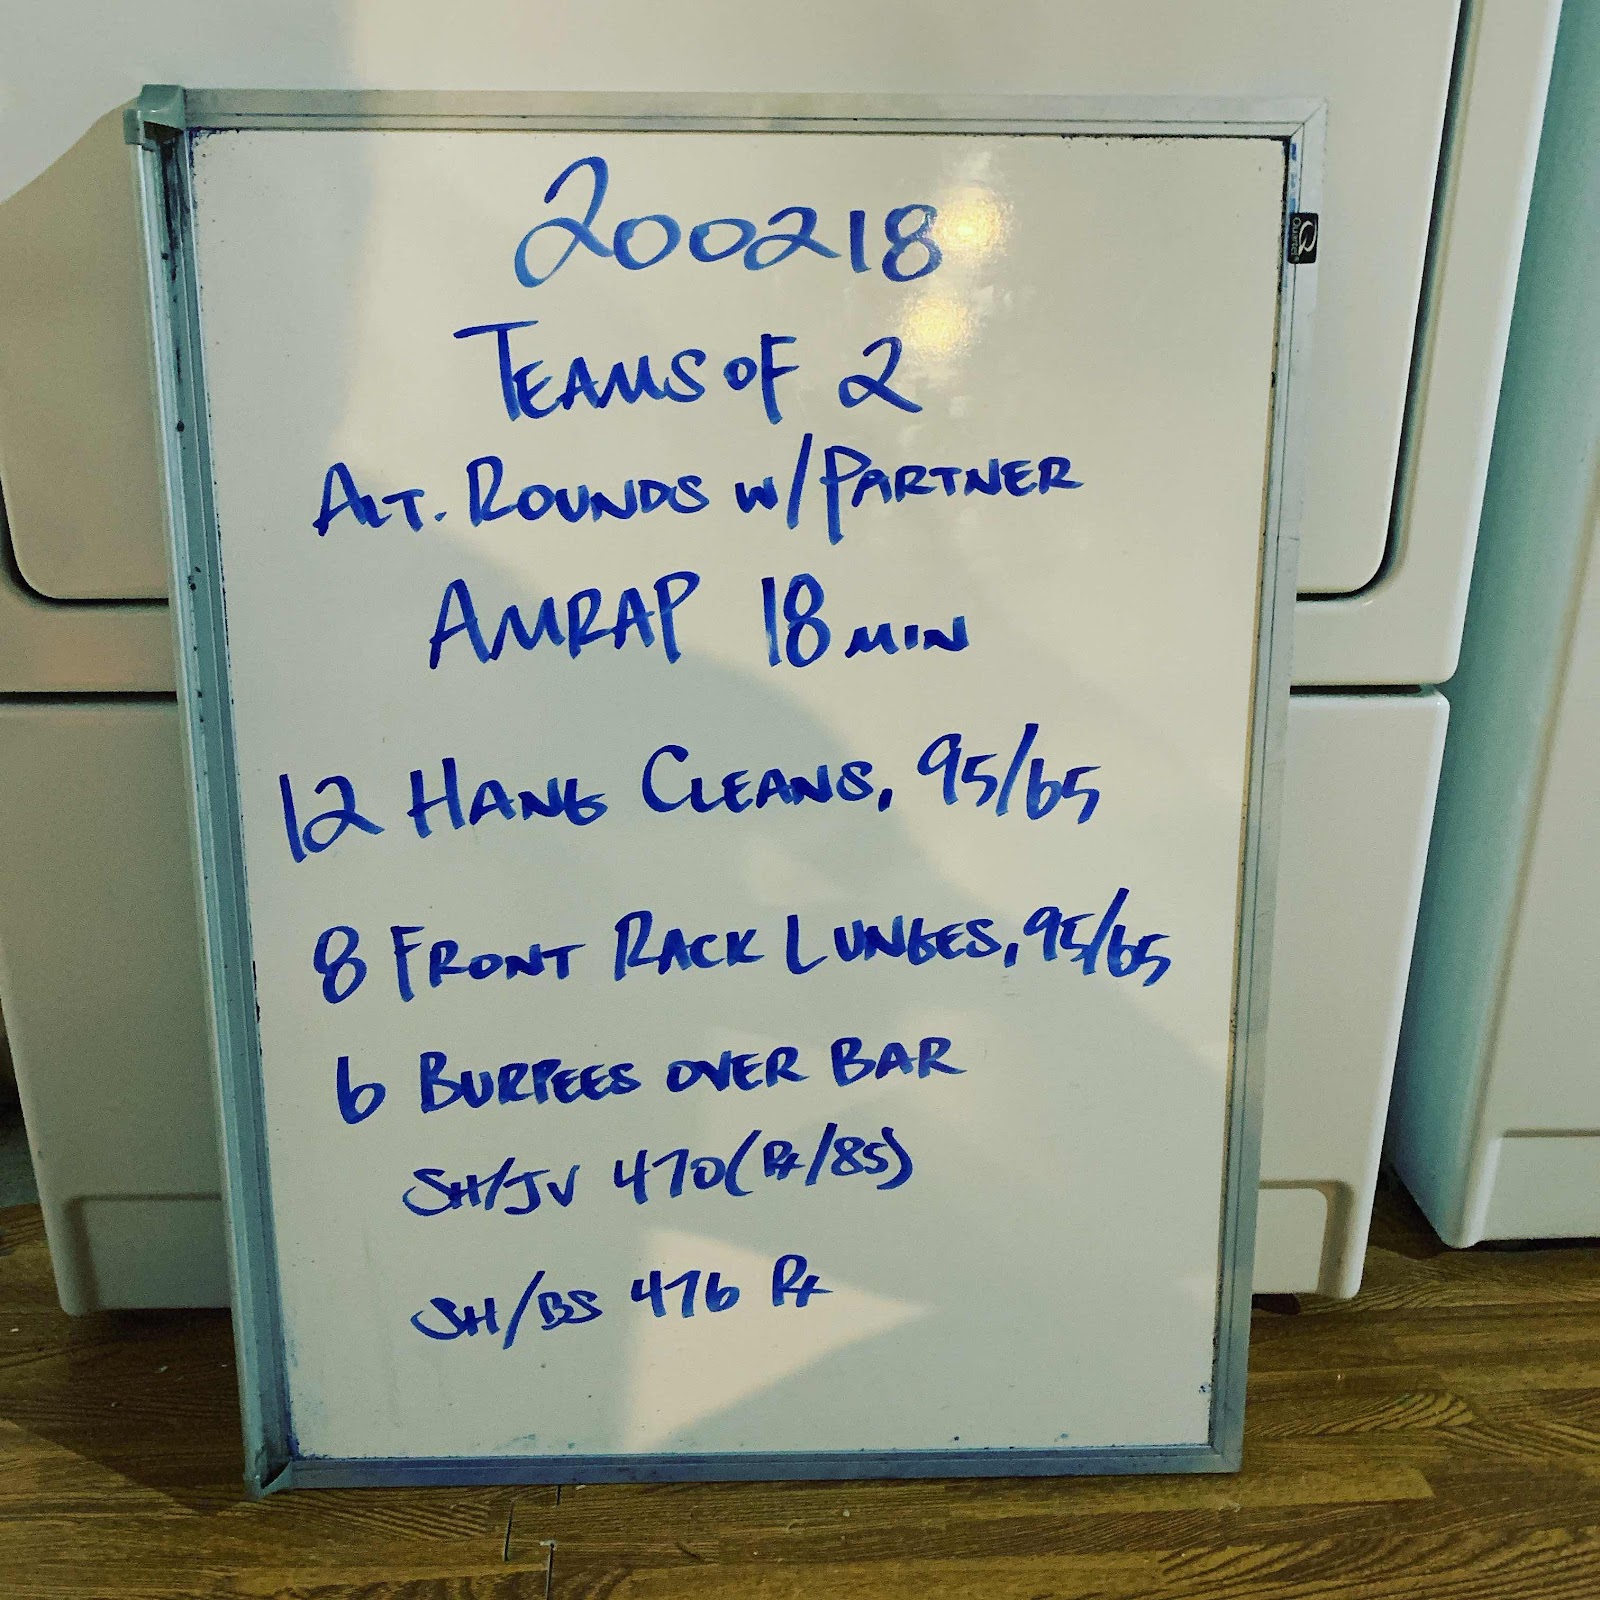 200218
TEAMS OF 2
ALT. ROUNDS W/PARTNER
AMRAP 18 MIN
12 HANG CLEANS, 95/65
8 FRONT RACK LUNGES, 95/65
6 BURPEES OVER BAR
SH/JV 470(Rx/85)
SH/BS 476 Rx
Quartet